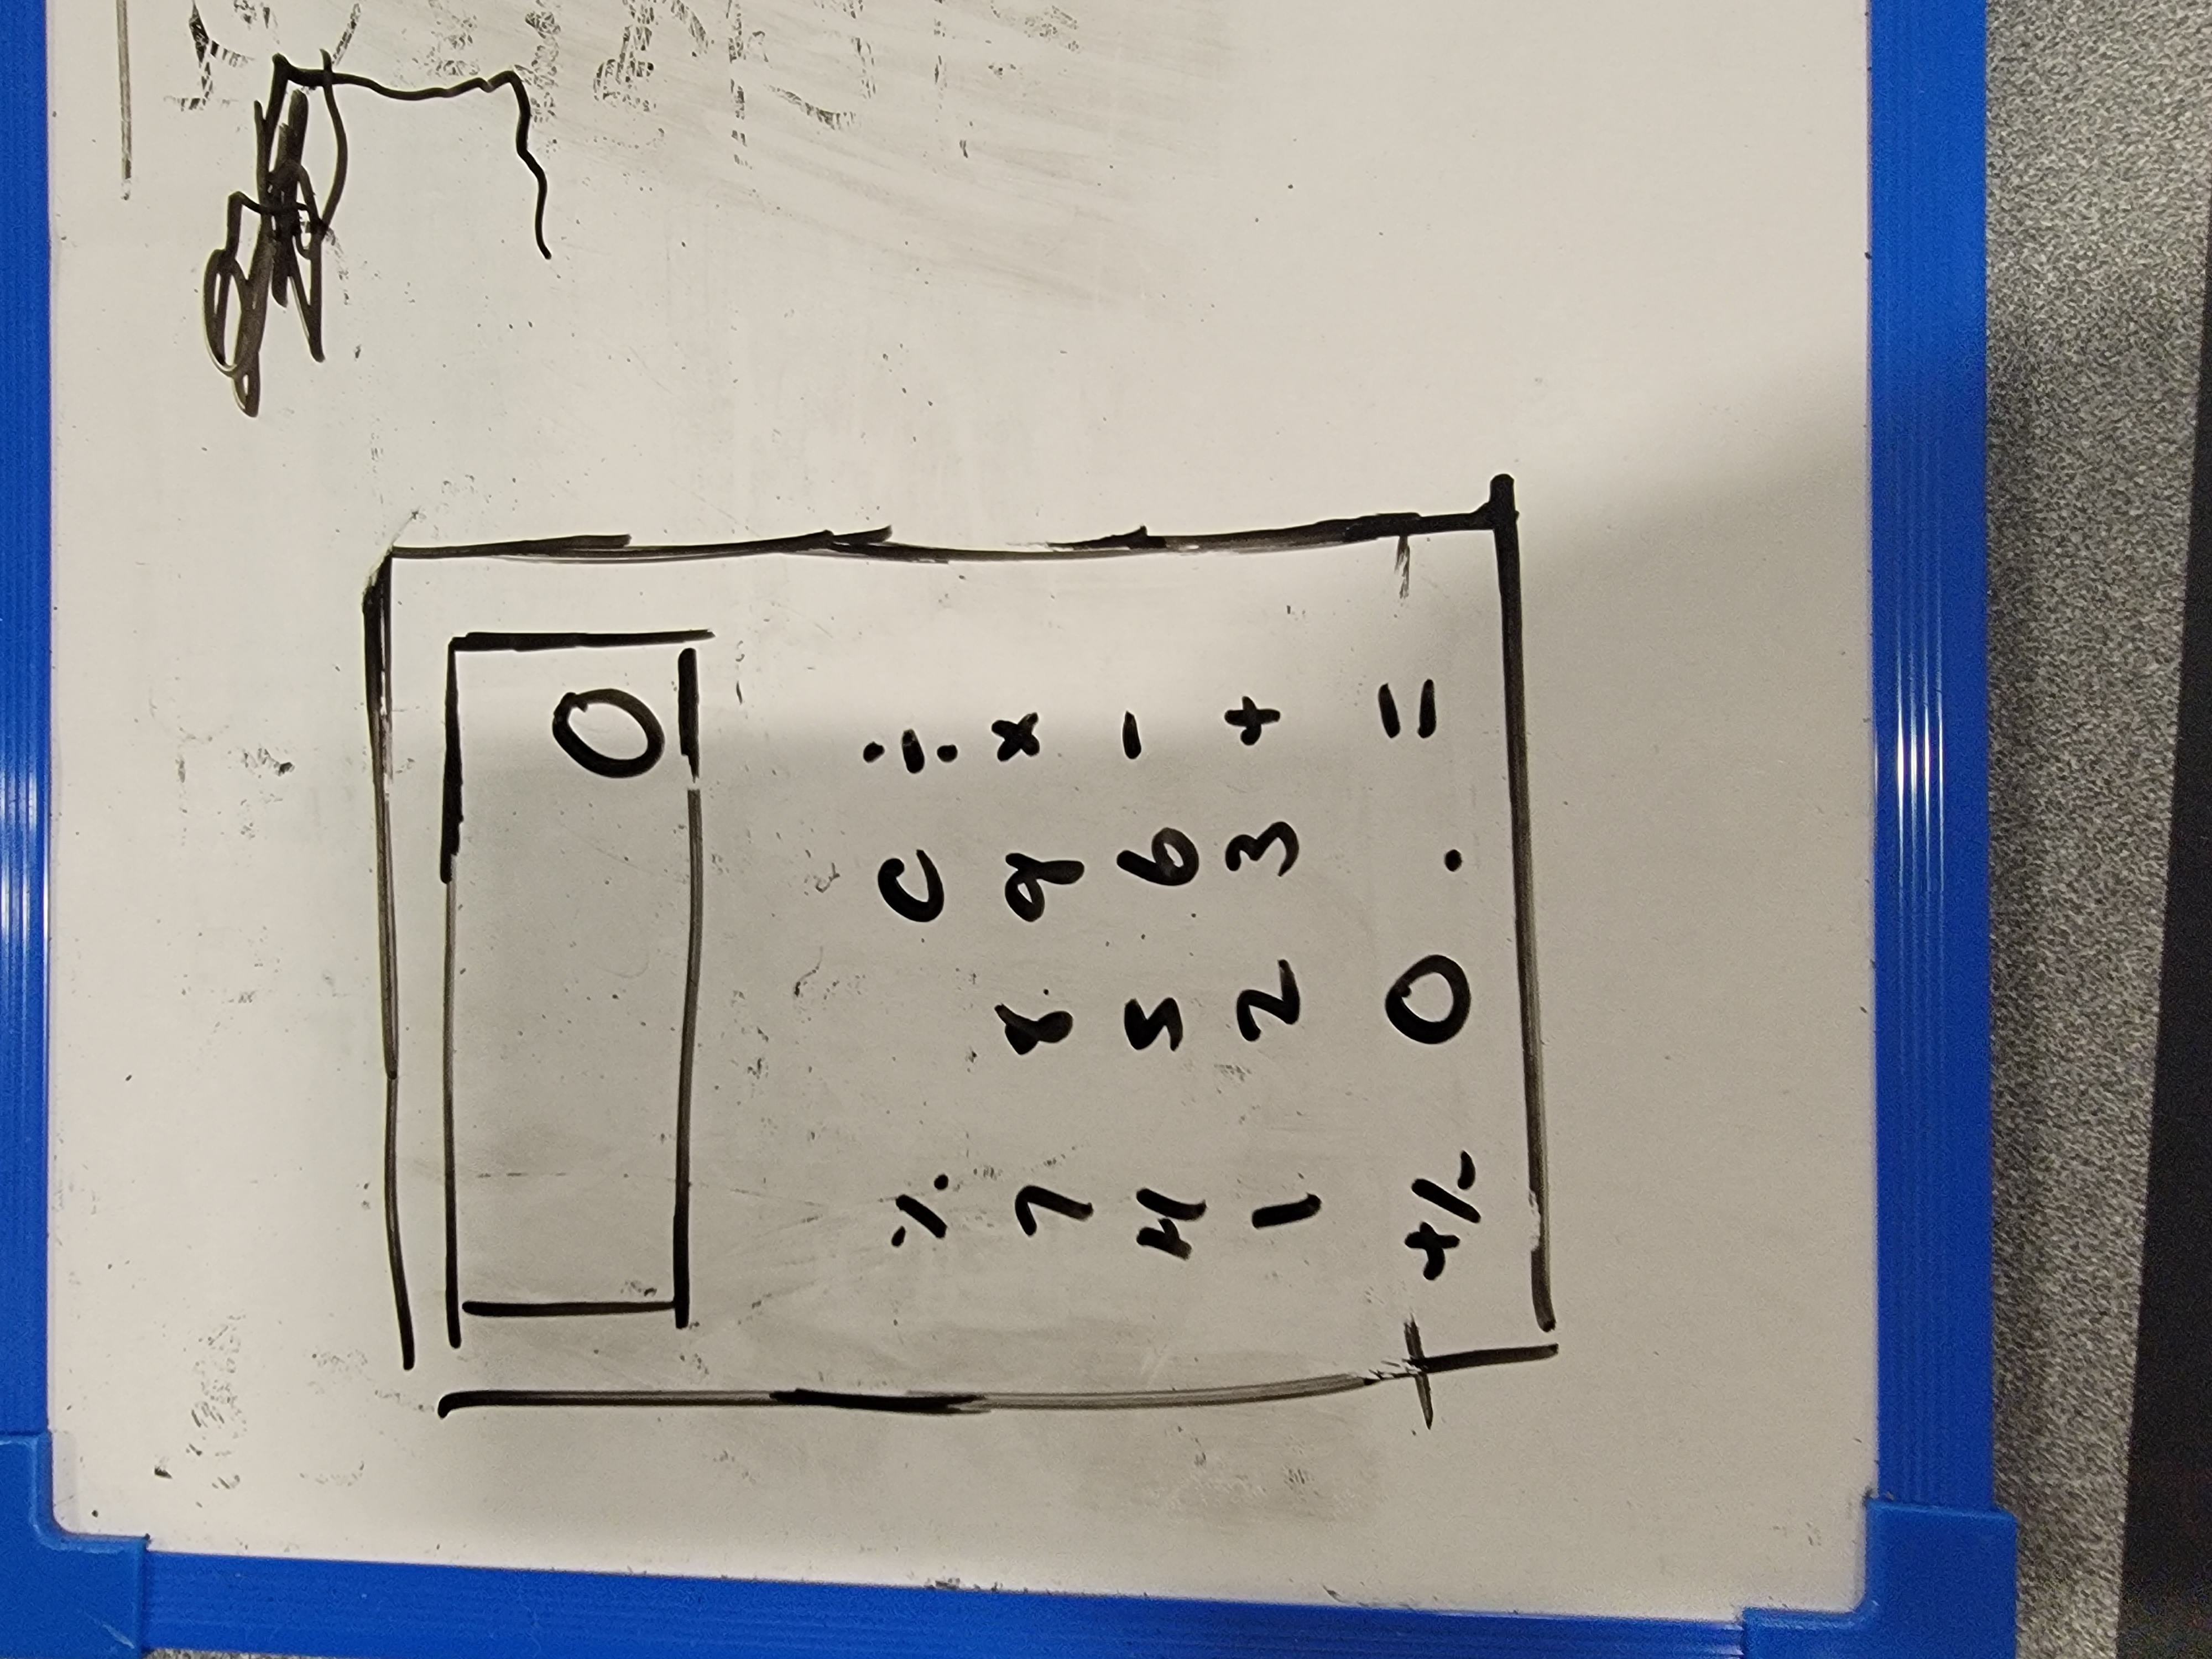 0
% C ÷
7 8 9 ×
4 5 6 -
1 2 3 +
+/- 0 . =